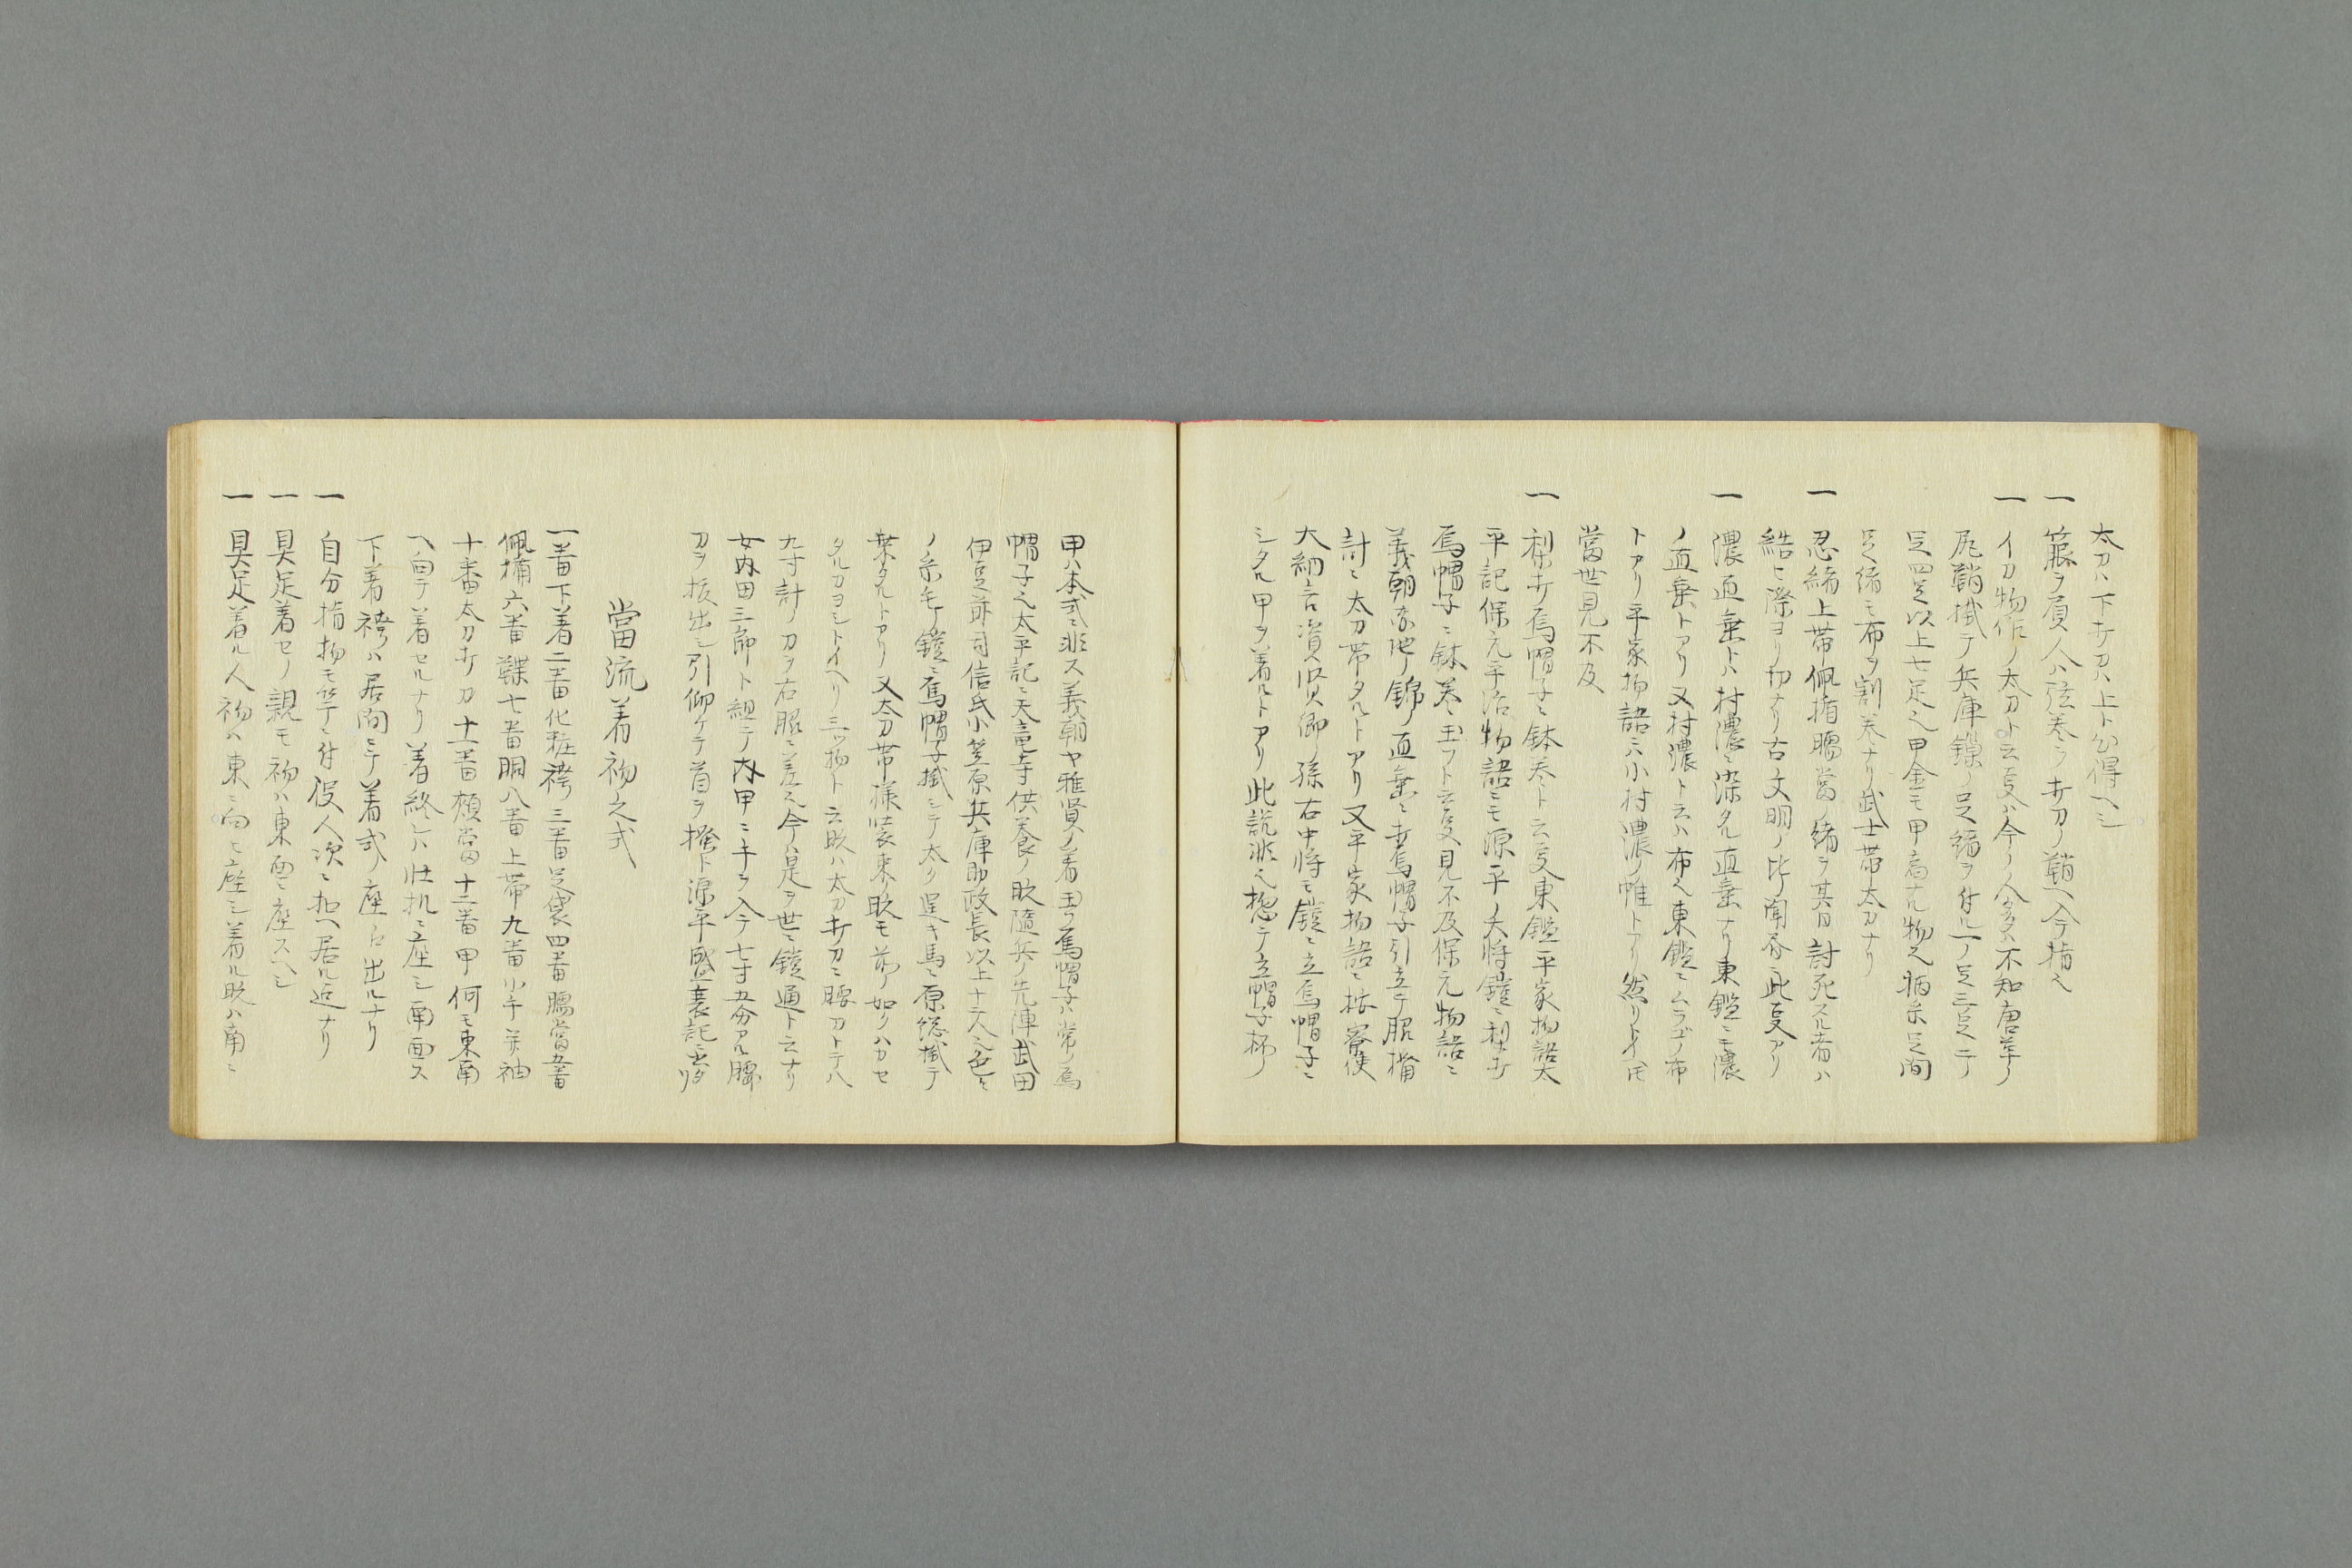 太刀ハ下打刀ハ上ト心得ヘシ
一 箙ヲ負人ハ弦巻ヲ打刀ノ鞘ヘ今指之
一 イカ物作ノ太刀ト云叓ハ今ノ人多ハ不知唐草ノ
尻鞘掛テ兵庫鏁ノ足緒ヲ付ル一ノ足二足ニテ
足四足以上七足之甲金モ甲高ナル物之柄糸足間
足緒モ布ヲ割巻ナリ武士帯太刀ナリ
一 忍緒上帯佩楯臑當ノ緒ヲ其日討死スル者ハ
結ヒ際ヨリ切ナリ古文明ノ比ノ聞合此叓アリ
一 濃直垂トハ村濃ニ深タル直垂ナリ東鑑ニモ濃
ノ直垂トアリ又村濃ト云ハ布之東鑑ニムラゴノ布
トアリ平家物語ニハ小村濃ノ帷トアリ然リトイヘ𪜈
當世見不及
一 梨打烏帽子ニ鉢巻ト云叓東鑑平家物語太
平記保元平治物語ニモ源平ノ大将鎧ニ梨打
烏帽子ニ鉢巻シ玉フト云叓見不及保元物語ニ
義朝赤地ノ錦ノ直垂ニ折烏帽子引立テ脇楯
計ニ太刀帯タルトアリ又平家物語ニ按察使
大納言資賢卿ノ孫右中将モ鎧ニ立烏帽子ニ
シタル甲ヲ着ルトアリ此説非之惣テ立帽子杯ノ
甲ハ本式ニ非ス義朝ヤ雅賢ノ着玉フ烏帽子ハ常ノ烏
帽子之太平記ニ天竜寺供養ノ𪜈隨兵ノ先陣武田
伊豆前司信氏小笠原兵庫助政長以上十二人色々
ノ糸毛ノ鎧ニ烏帽子掛シテ太ク逞キ馬ニ厚総掛テ
乗タルトアリ又太刀帯様装束ノ時モ前ノ如クハカセ
タルカヨシトイヘリ三ツ物ト云時ハ太刀打刀ニ腰刀トテ八
九寸計ノ刀ヲ右脇ニ差之今ハ是ヲ世ニ鎧通ト云ナリ
女内田三郎ト組テ内甲ニ手ヲ入テ七寸五分アル腰
刀ヲ抜出シ引仰ケテ首ヲ掻ト源平盛衰記ニ出タリ
當流着初之式
一番下着二番化粧袴三番足袋四番臑當五番
佩楯六番鞢七番胴八番上帯九番小手並袖
十番太刀打刀十一番頬當十二番甲何モ東南
ヘ向テ着セルナリ着終レハ牀机ニ座シ南面ス
下着袴ハ居間ニテ着式ノ座ヘ出ルナリ
一 自分指物モ竿ニ付役人次ニ扣ヘ居ル迄ナリ
一 具足着セノ親モ初ハ東面ニ座スヘシ
一 具足着ル人初ハ東ニ向ヒ座シ着ル時ハ南ニ